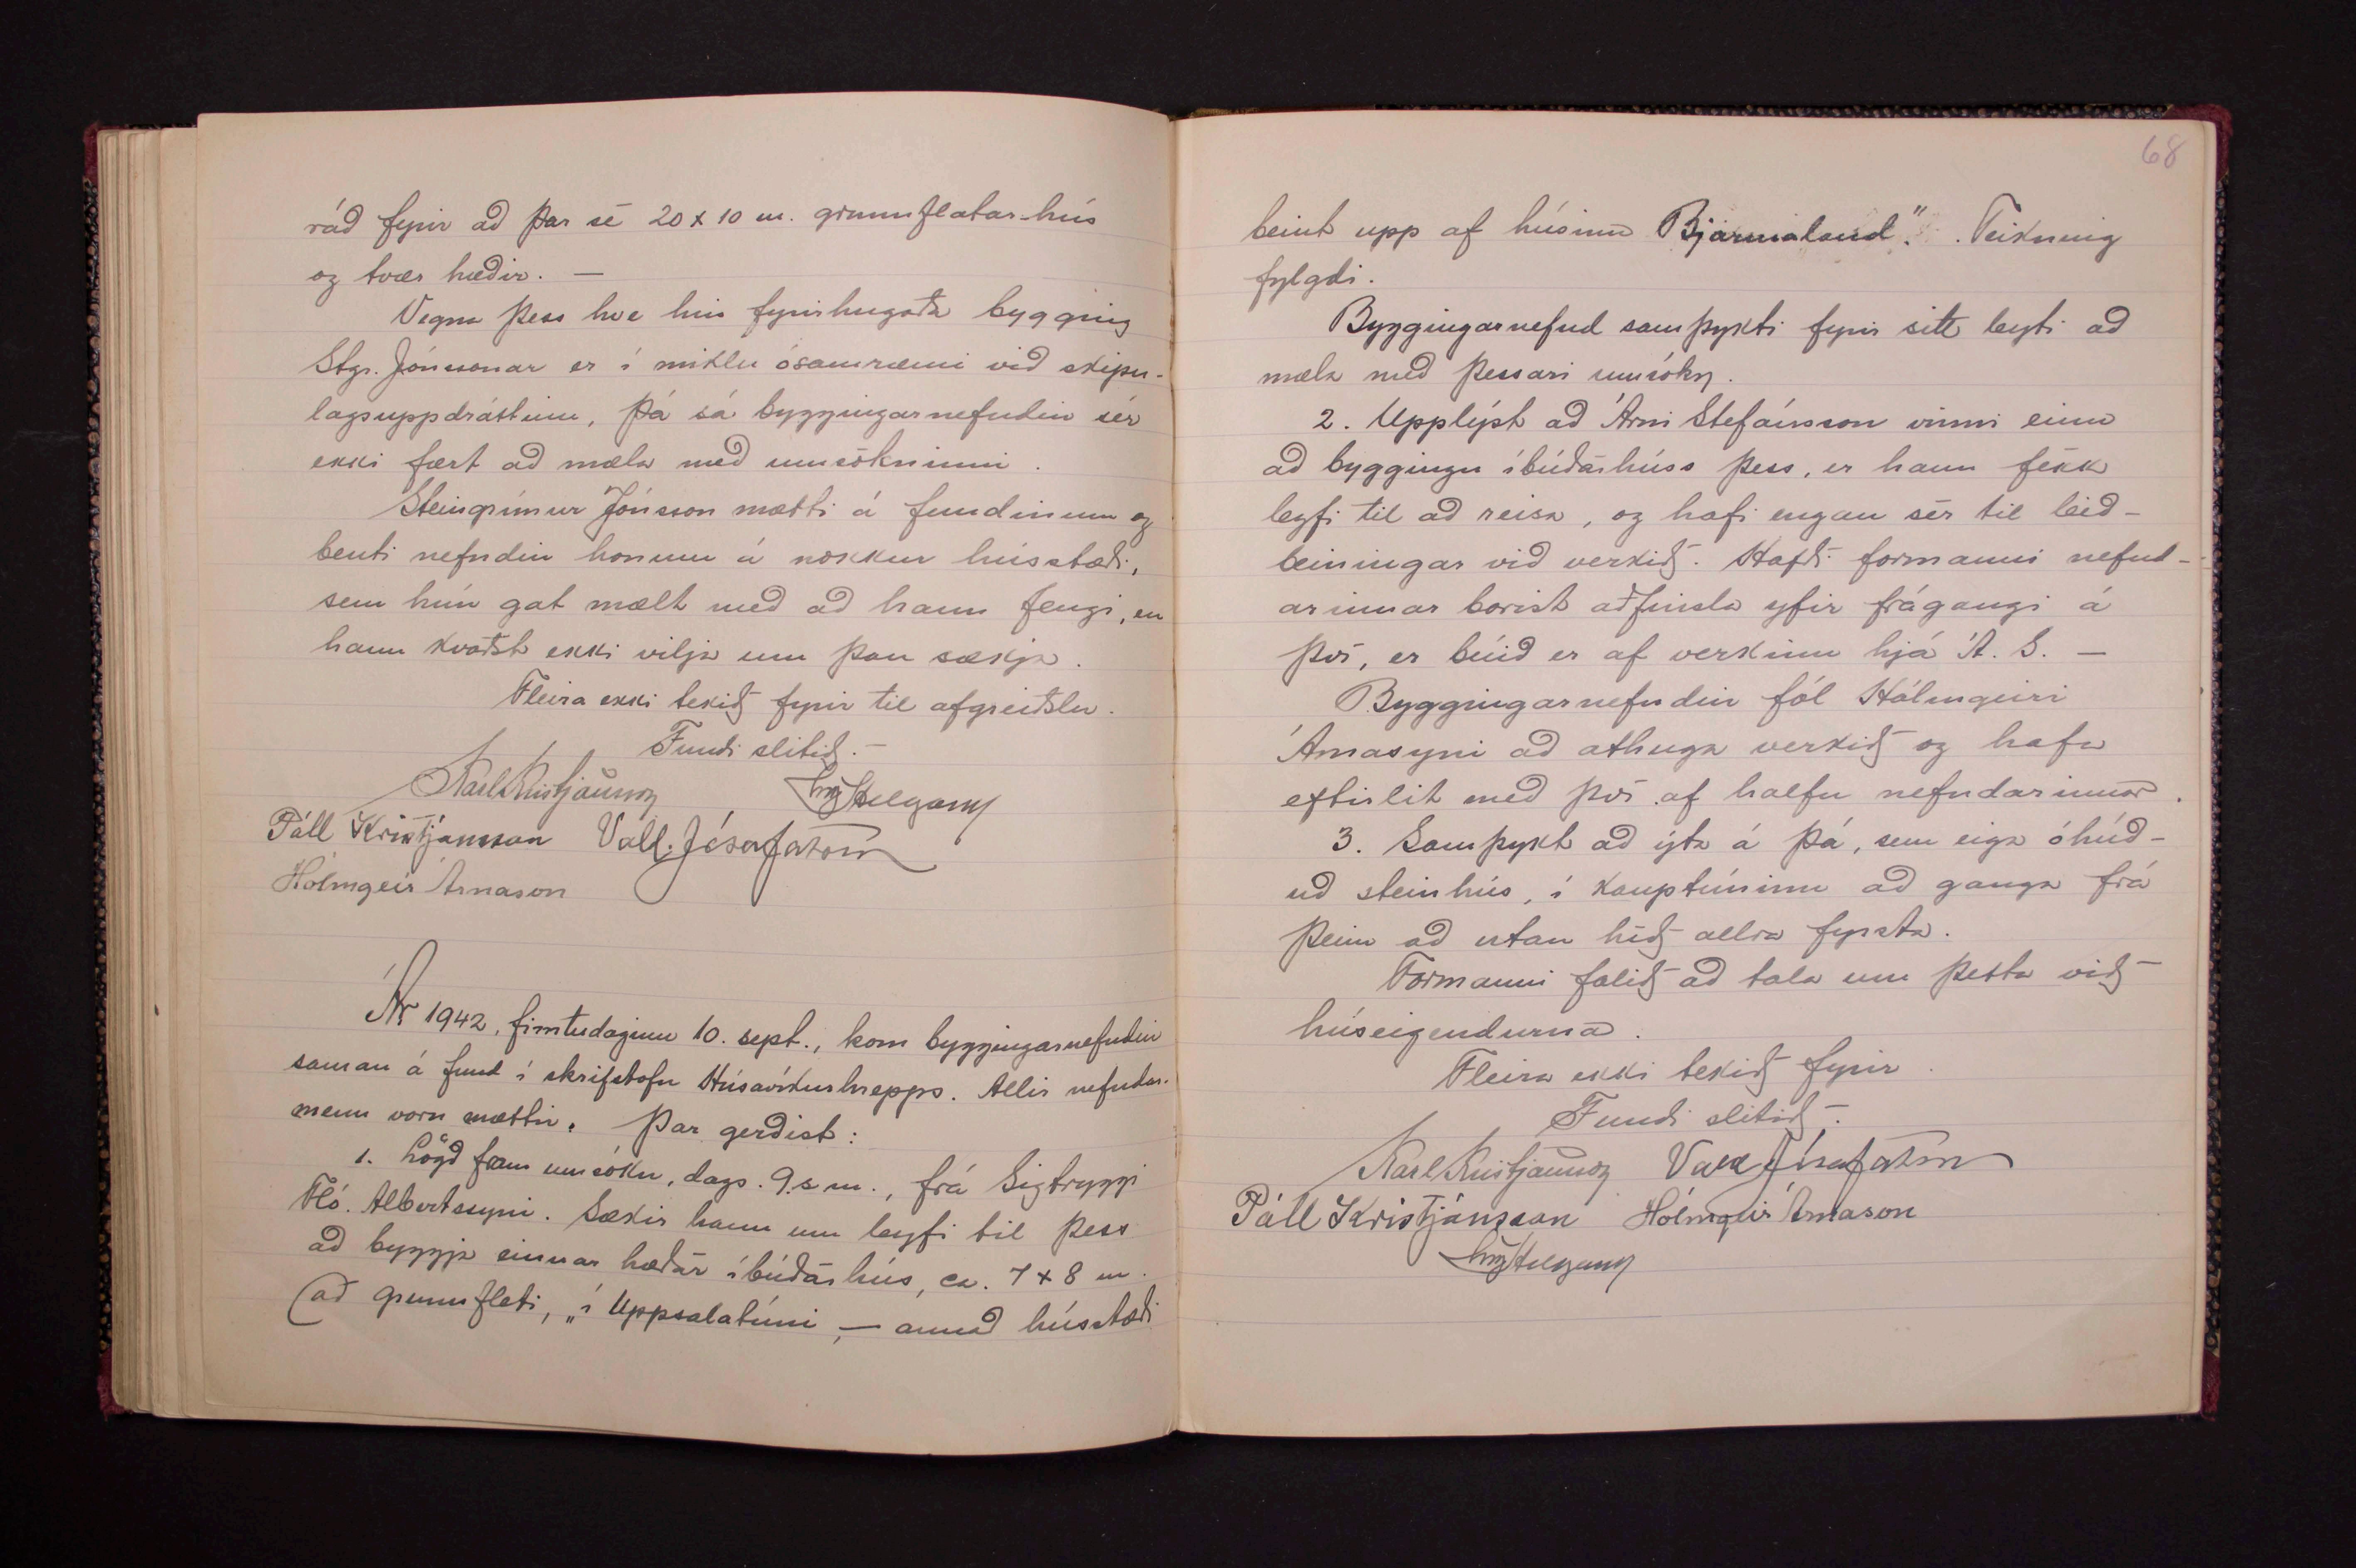 ráð fyrir að þar sé 20 x 10 m. grunnflatar-hús
og tvær hæðir. —
Vegna þess hve hin fyrirhugaða bygging
Stgr. Jónssonar er í miklu ósamræmi við skipu-
lagsuppdráttinn, þá sá byggingarnefndin sér
ekki fært að mæla með umsókninni.
Steingrímur Jónsson mætti á fundinum og
benti nefndin honum á nokkur hússtæði,
sem hún gat mælt með að hann fengi, en
hann kvaðst ekki vilja um þau sækja.
Fleira ekki tekið fyrir til afgreiðslu.
Fundi slitið. —
Karl Kristjánsson Helgason
Páll Kristjánsson Vald. Jósafatsson
Hólmgeir Árnason
Ár 1942, fimtudaginn 10. sept., kom byggingarnefndin
saman á fund í skrifstofu Húsavíkurhrepps. Allir nefndar-
menn voru mættir. Þar gerðist:
1. Lögð fram umsókn, dags. 9. s m., frá Sigtryggi
Fló. Albertssyni. Sækir hann um leyfi til þess
að byggja einnar hæðar íbúðarhús, ca. 7 x 8 m.
að grunnfleti, „í Uppsalatúni, — annað hússtæði
68
beint upp af húsinu Bjarmaland". Teikning
fylgdi.
Byggingarnefnd samþykti fyrir sitt leyti að
mæla með þessari umsókn.
2. Upplýst að Árni Stefánsson vinni einn
að byggingu íbúðarhúss þess, er hann fékk
leyfi til að reisa, og hafi engan sér til leið-
beiningar við verkið. Hafði formanni nefnd-
arinnar borist aðfinsla yfir frágangi á
því, er búið er af verkinu hjá Á. S. —
Byggingarnefndin fól Hólmgeiri
Árnasyni að athuga verkið og hafa
eftirlit með því af hálfu nefndarinnar.
3. Samþykt að ýta á þá, sem eiga óhúð-
uð steinhús, í kauptúninu að ganga frá
þeim að utan hið allra fyrsta.
Formanni falið að tala um þetta við
húseigendurna.
Fleira ekki tekið fyrir.
Fundi slitið. —
Karl Kristjánsson Vald. Jósafatsson
Páll Kristjánsson Hólmgeir Árnason
Helgason